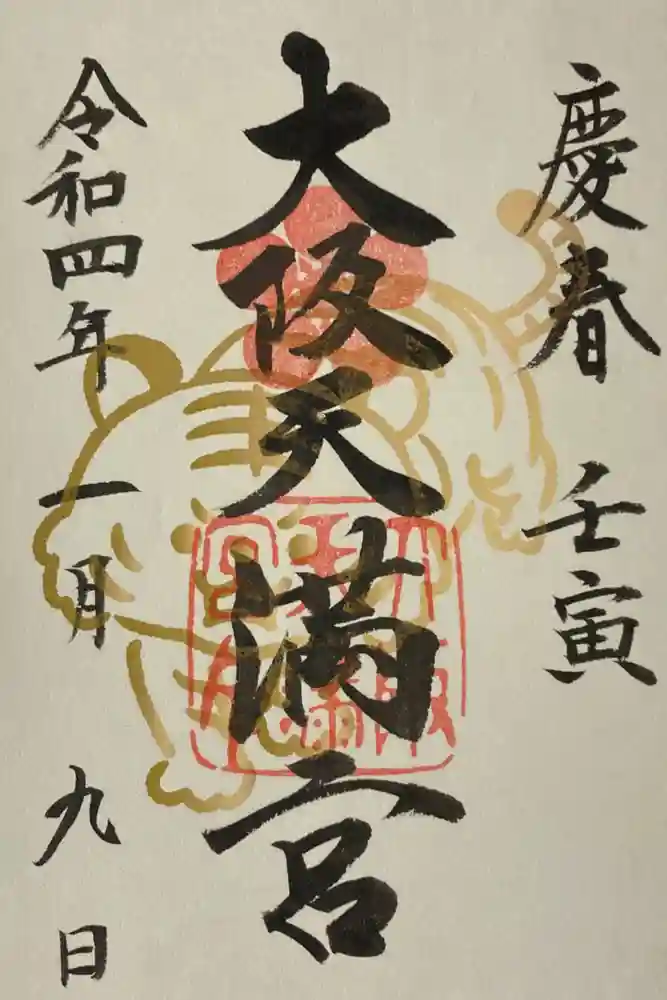 慶春 壬寅
大阪天満宮
令和四年一月九日